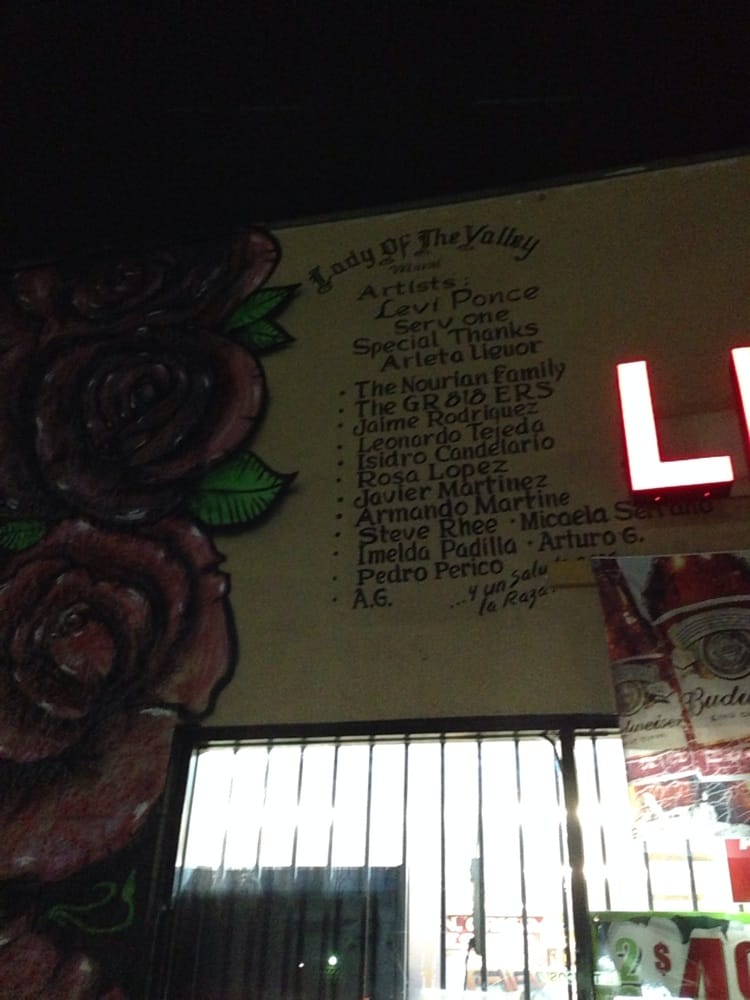 Lady Of The Valley
Mural
Artists:
Levi Ponce
Serv one
Special Thanks
Arleta Liquor
· The Nourian Family
· The GR818ERS
· Jaime Rodriquez
· Leonardo Tejeda
· Isidro Candelario
· Rosa Lopez
· Javier Martinez
· Armando Martine
· Steve Rhee · Micaela Serrano
· Imelda Padilla · Arturo G.
· Pedro Perico
· A.G.
...y un
la Raza
L
Budw
dweiser
2 $